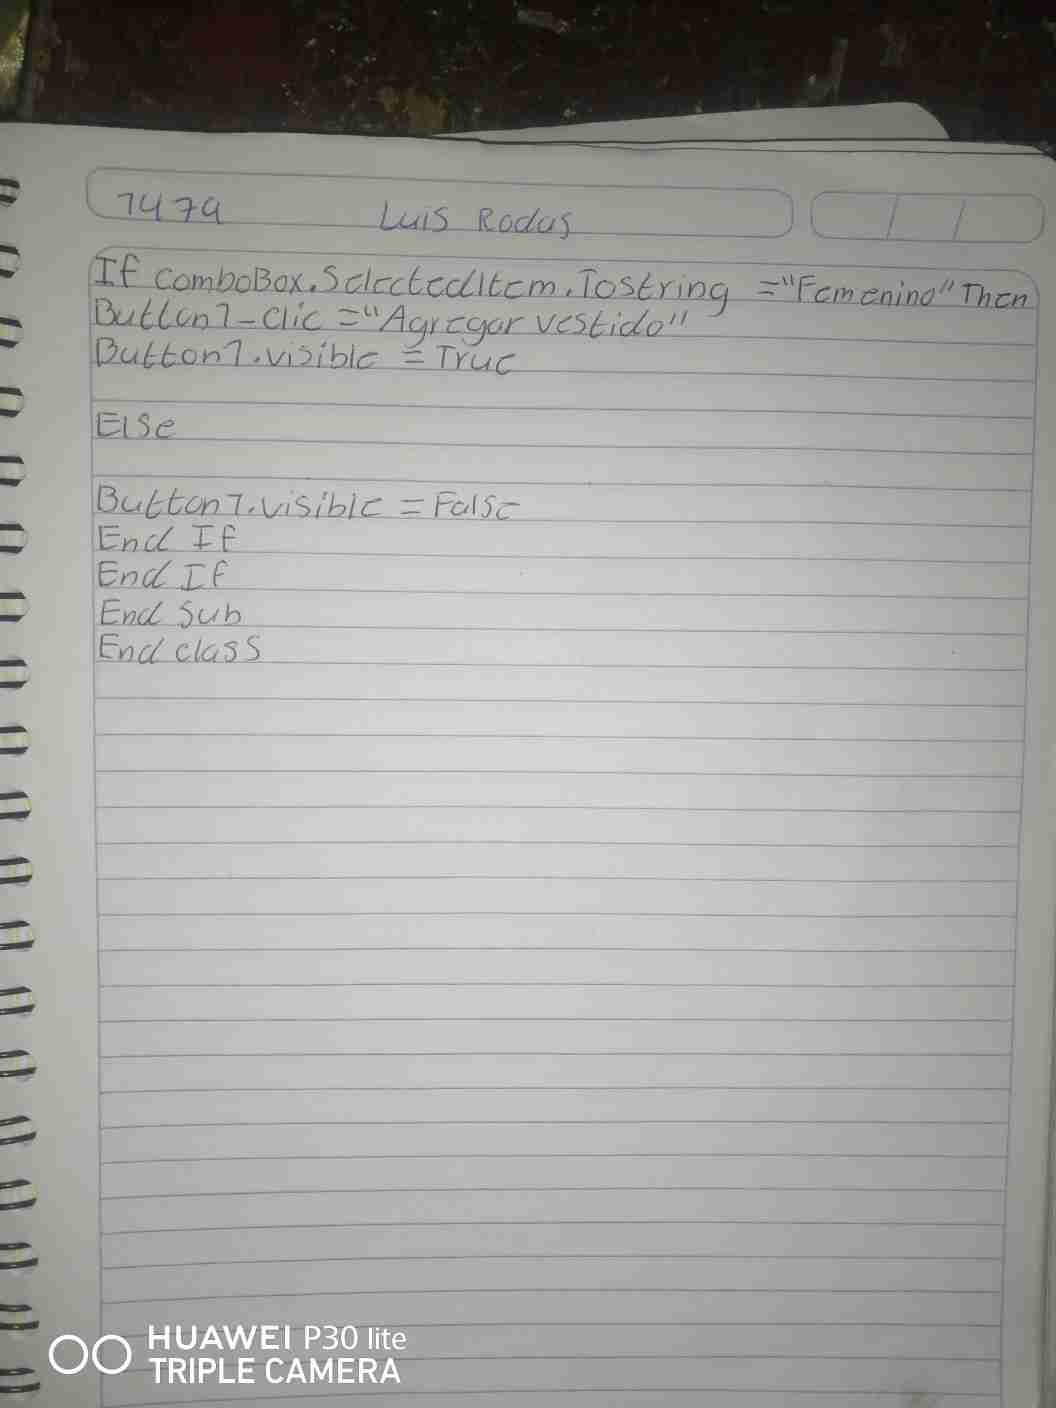 1479 Luis Rodas
If comboBox.SelectedItem.ToString ="Femenino" Then
Button1-clic ="Agregar vestido"
Button1.visible = True
Else
Button1.visible = False
End If
End If
End Sub
End class
HUAWEI P30 lite
TRIPLE CAMERA